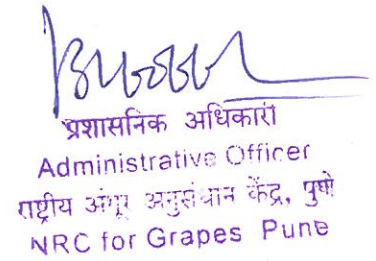 प्रशासनिक अधिकारी
Administrative Officer
राष्ट्रीय अंगूर अनुसंधान केंद्र, पुणे
NRC for Grapes Pune